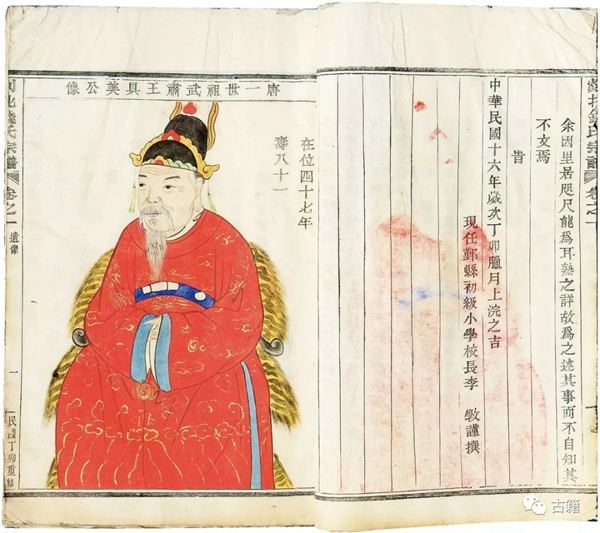 錢氏宗譜 卷之一
余因里居咫尺能爲耳熟之詳故爲之述其事而不自知其
不文焉
旹
中華民國十六年歲次丁卯臘月上浣之吉
現任鄞縣初級小學校長李 謹撰
唐一世祖武肅王具美公像
在位四十七年
壽八十一
錢氏宗譜 卷之一 遺像 一 民國丁卯重修
古籍